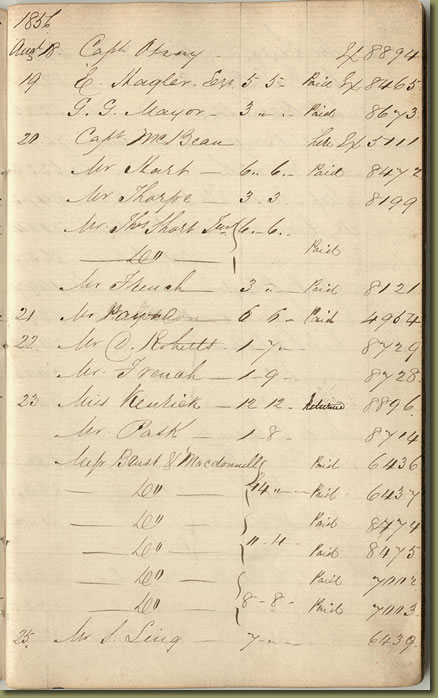 1856
Augt 18 Capt. Otway Ex 8894
19 E. Nagler Esq 5 5 - Paid Ex 8465
G. G. Mayor - 3 " - Paid 8673
20 Capt. McBean Ex 5111
Mr Hart - 6 .. 6 .. - Paid 8472
Mr Thorpe - 3 . 3 8199
Mr Thos Short Junr 6 - 6 -
- Do " - Paid
Mr French - 3 " - Paid 8121
21 Mr 6 6 - Paid 4954
22 Mr D. Roberts - 1 - 7 - 8729
Mr French - 1 - 9 - 8728
23 Miss Kenrick - 12 12 - Returned 8896
Mr Pask - 1 - 8 - 8714
Messrs & Macdonnell Paid 6436
- Do " - 14 " - Paid 6437
- Do " - Paid 8474
- Do " - 11 - 11 - Paid 8475
- Do " - Paid 7002
- Do " - 8 - 8 - Paid 7003
25 Mr S. Ling - 7 - 6439